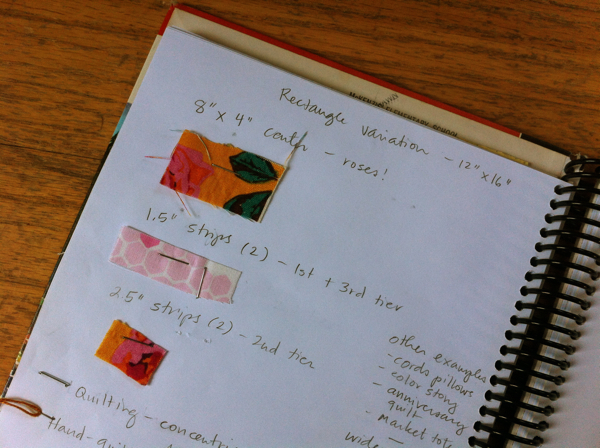 ELEMENTARY SCHOOL
Rectangle Variation - 12" x 16"
8" x 4" center - roses!
1.5" strips (2) - 1st + 3rd tier
2.5" strips (2) - 2nd tier
other examples
- cords pillows
- color story
- anniversary
quilt
- market tote
wide -
Quilting - concentric
Hand-